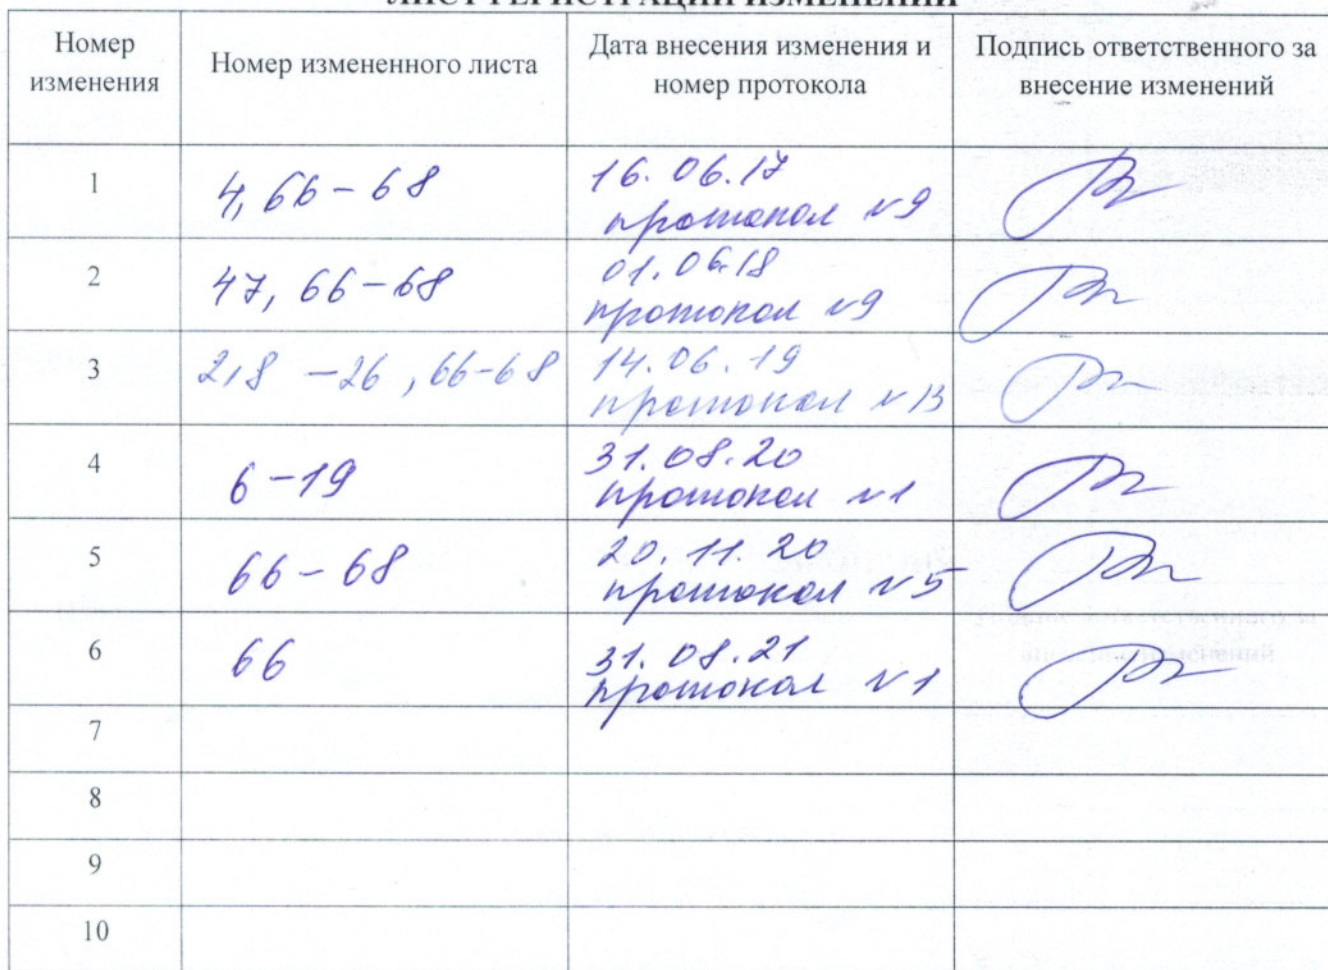 ЛИСТ РЕГИСТРАЦИИ ИЗМЕНЕНИЙ
Номер
изменения
Номер измененного листа
Дата внесения изменения и
номер протокола
Подпись ответственного за
внесение изменений
1
4, 66 - 68
16. 06. 17
протокол №9
2
47, 66 - 68
01. 06. 18
протокол №9
3
2,8 - 26, 66-68
14. 06. 19
протокол №13
4
6 - 19
31. 08. 20
протокол №1
5
66 - 68
20. 11. 20
протокол №5
6
66
31. 08. 21
протокол №1
7
8
9
10